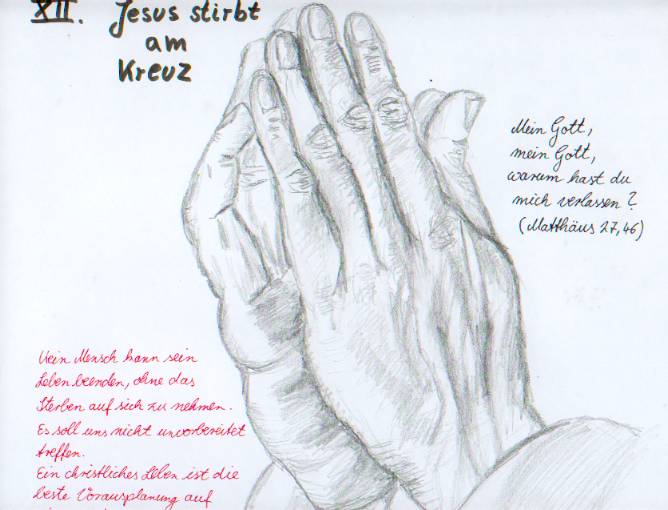 XII. Jesus stirbt
am
Kreuz
Mein Gott,
mein Gott,
warum hast du
mich verlassen?
(Matthäus 27,46)
Kein Mensch kann sein
Leben beenden, ohne das
Sterben auf sich zu nehmen.
Es soll uns nicht unvorbereitet
treffen.
Ein christliches Leben ist die
beste Vorausplanung auf